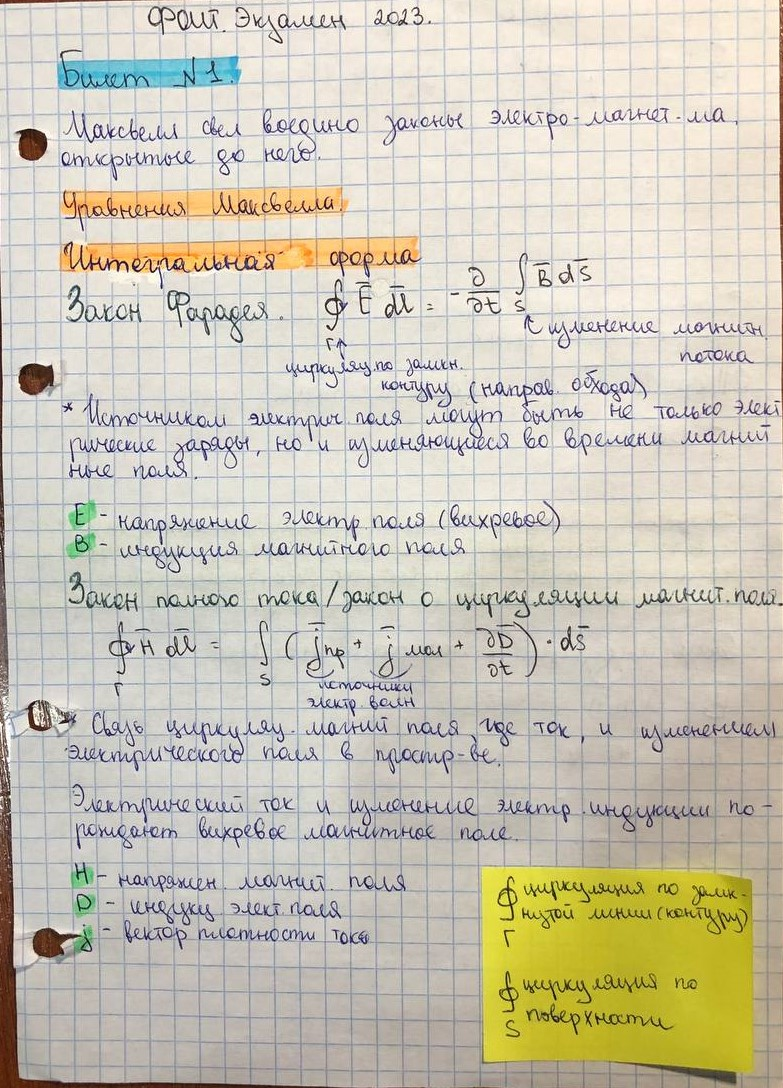 ФОИТ. Экзамен 2023.
Билет №1.
Максвелл свел воедино законы электро-магнет-ма,
открытые до него.
Уравнения Максвелла.
Интегральная форма
Закон Фарадея. ∮_Г E̅ dl̅ = -∂/∂t ∫_S B̅ dS̅
↖ изменение магнитн.
потока
циркуляц. по замкн.
контуру (направ. обхода)
* Источником электрич. поля могут быть не только элект
рические заряды, но и изменяющиеся во времени магнит
ные поля.
E - напряжение электр. поля (вихревое)
B - индукция магнитного поля
Закон полного тока/закон о циркуляции магнит. поля.
∮_Г H̅ dl̅ = ∫_S (j̅пр + j̅мол + ∂D̅/∂t) · dS̅
источники
электр. волн
* Связь циркуляц. магнит поля, где ток, и изменением
электрического поля в простр-ве.
Электрический ток и изменение электр. индукции по-
рождают вихревое магнитное поле.
H - напряжен. магнит. поля
D - индукц элект. поля
j - вектор плотности тока
∮_Г циркуляция по замк-
нутой линии (контуру)
∮_S циркуляция по
поверхности